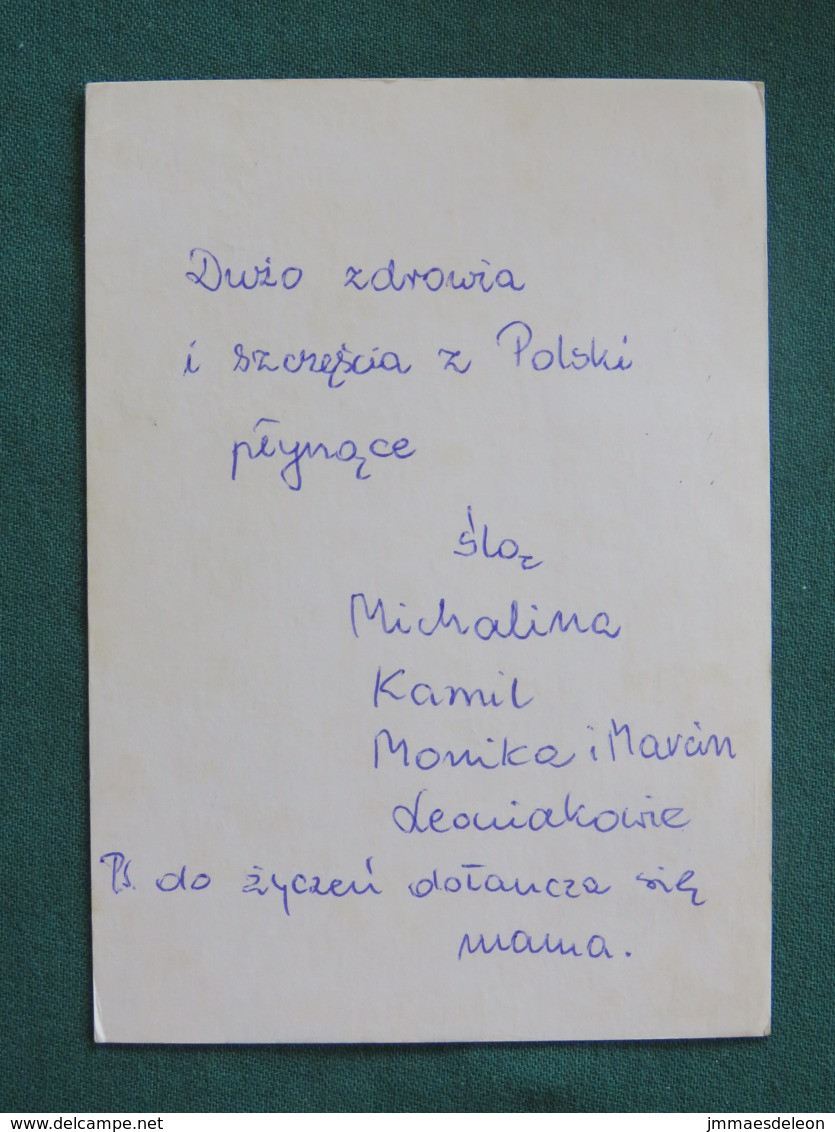 Dużo zdrowia
i szczęścia z Polski
płynące
ślą
Michalina
Kamil
Monika i Marcin
Leoniakowie
Ps. do życzeń dołancza się
mama.
delcampe.net
jmmaesdeleon